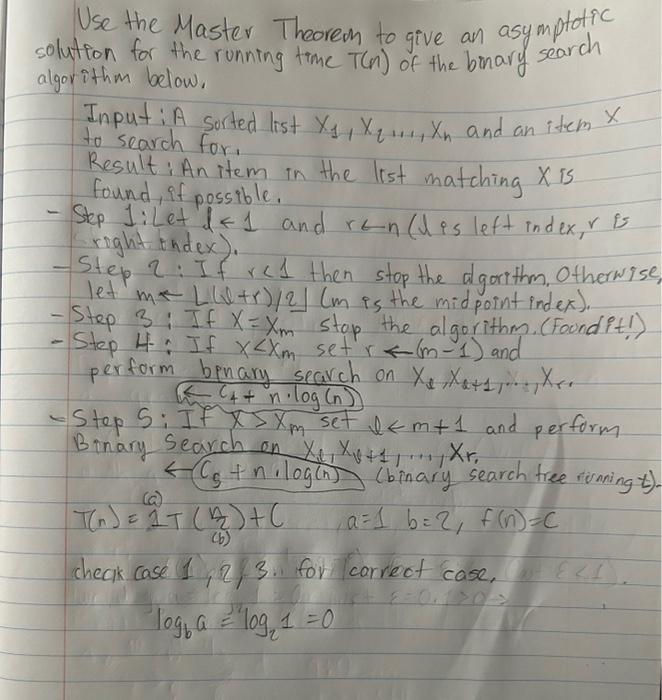 Use the Master Theorem to give an asymptotic
solution for the running time T(n) of the binary search
algorithm below.
Input: A sorted list X₁, X₂, ..., Xₙ and an item X
to search for.
Result: An item in the list matching X is
found, if possible.
- Step 1: Let l ← 1 and r ← n (l is left index, r is
right index).
- Step 2: If r < 1 then stop the algorithm. Otherwise,
let m ← ⌊(l+r)/2⌋ (m is the midpoint index).
- Step 3: If X = Xₘ stop the algorithm. (Found it!)
- Step 4: If x < Xₘ set r ← (m-1) and
perform binary search on Xₗ, Xₗ₊₁, ..., Xᵣ.
← C₄ + n·log(n)
- Step 5: If X > Xₘ set l ← m+1 and perform
Binary Search on Xₗ, Xₗ₊₁, ..., Xᵣ.
← C₅ + n·log(n) (binary search tree running t).
(a)
T(n) = 1T(n/2) + C , a=1 b=2, f(n)=C
(b)
check case 1, 2, 3.. for correct case.
log_b a = log₂ 1 = 0